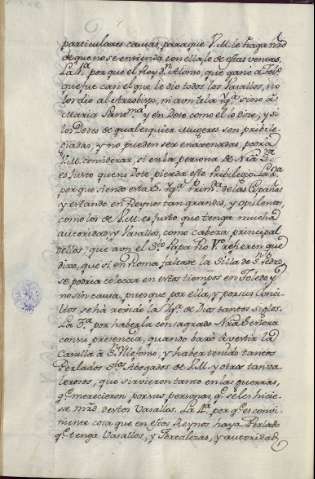 particulares causas, para que V.M. le haga mrd
de que no se entienda con ella lo de estas ventas.
La 1ª porque el Rey Dn Alonso, que gano a Tolº
que fue casi el que le dio todos los Vasallos, no
los dio al Arzobispo, ni aun a la Yglª sino a
Maria SSma y en Dote como el lo dize, y si
los Dotes de qualesquier Mugeres son privile
giadas, y no pueden ser enagenadas, podra
V.M. considerar, si en la persona de Nra Sra
es justo que su Dote pierda este Privilegio. La 2ª
porque siendo esta Sta Yglª Primª de las Españas
y estando en Reynos tan grandes, y opulentos,
como los de V.M. es justo que tenga mucha
autoridad y Vasallos, como cabeza principal
de ellos, que aun el Sto Papa Pio Vº refieren que
dixo, que si en Roma faltase la Silla de Sn Pedro
se podria colocar en estos tiempos en Toledo, y
no sin causa, pues que por ella, y por sus Conci
lios se ha regido la Yglª de Dios tantos siglos.
La 3ª por haberla consagrado Nrâ Señora
con su presencia, quando baxô a vestir la
Casulla â Sn Ylefonso, y haber tenido tantos
Perlados Stos Abogados de V.M. y otros tan va
lerosos, que sirvieron tanto en las guerras,
q merecieron por sus personas q se les hicie
se mrd de estos Vasallos. La 4ª porq es conve
niente cosa que en estos Reynos haya Perlado
q tenga Vasallos, y Fortalezas, y autoridad